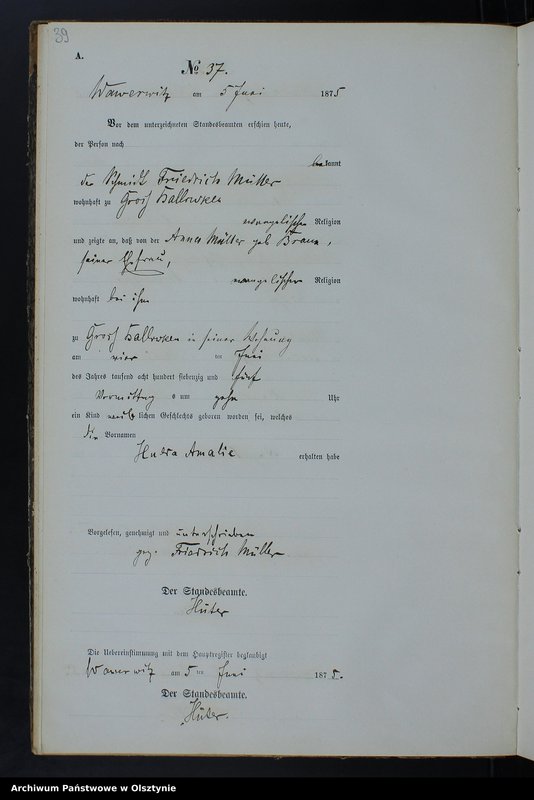 39
A.
№ 37.
Wawerwitz am 5 Juni 1875
Vor dem unterzeichneten Standesbeamten erschien heute,
der Person nach
bekannt
der Schmidt Friedrich Müller
wohnhaft zu Gross Hallowken
evangelischer Religion
und zeigte an, daß von der Anna Müller geb Braun,
seiner Ehefrau,
evangelischer Religion
wohnhaft bei ihm
zu Gross Hallowken in seiner Wohnung
am vier ten Juni
des Jahres tausend acht hundert siebenzig und fünf
Vormittag s um zehn Uhr
ein Kind weib lichen Geschlechts geboren worden sei, welches
die Vornamen
Amalie erhalten habe
Vorgelesen, genehmigt und unterschrieben
gez. Friedrich Müller
Der Standesbeamte.
Hüter
Die Uebereinstimmung mit dem Hauptregister beglaubigt
Wawerwitz am 5 ten Juni 1875.
Der Standesbeamte.
Hüter.
Archiwum Państwowe w Olsztynie